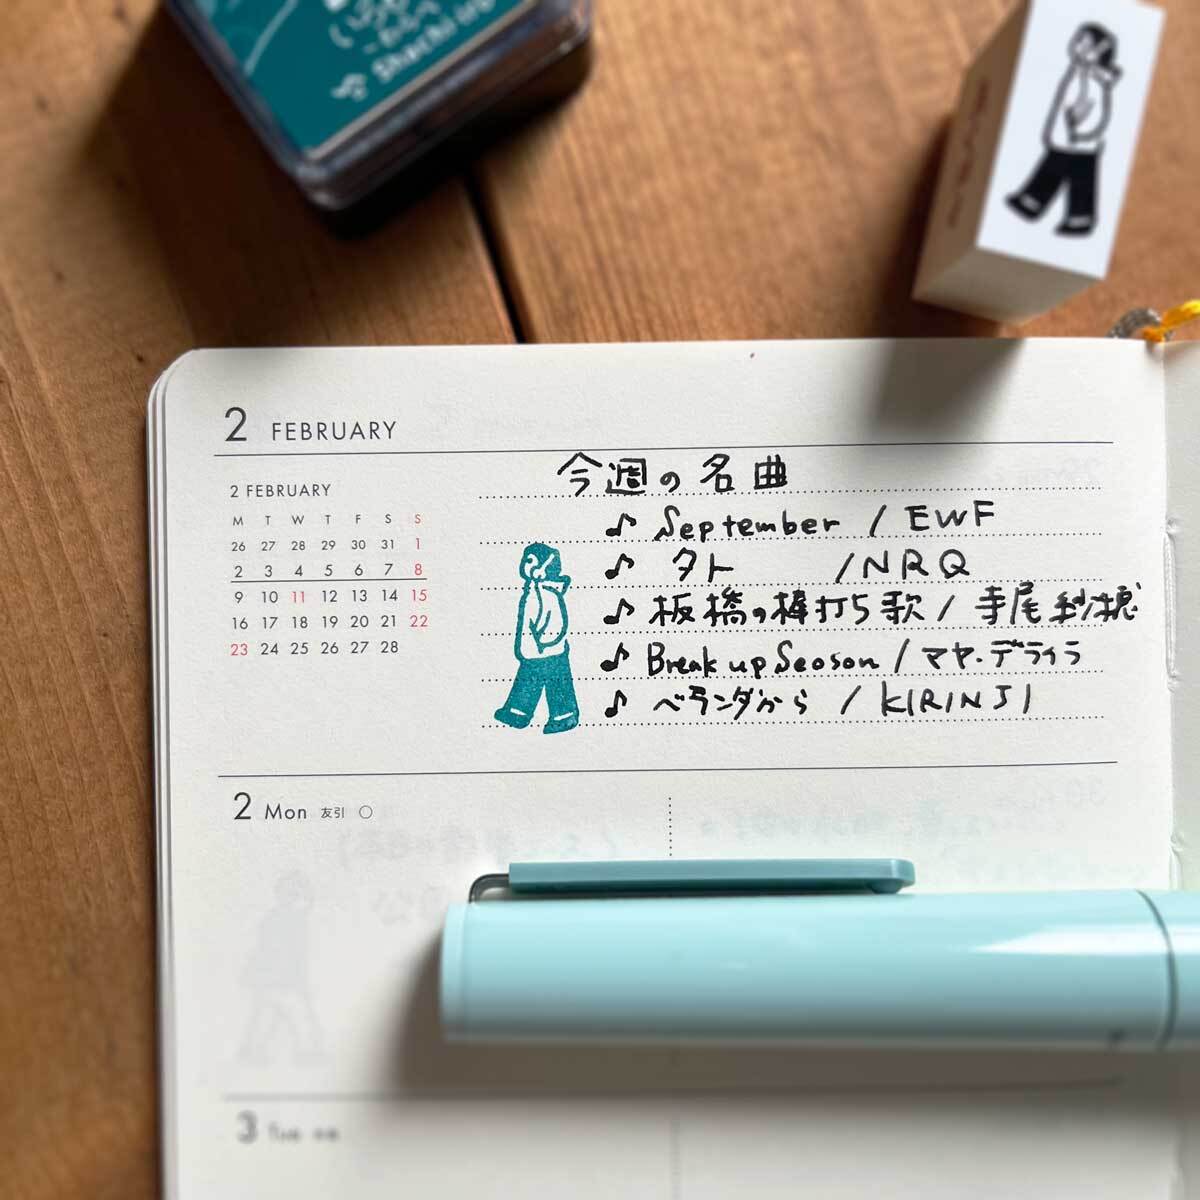 Shachi
2 FEBRUARY
2 FEBRUARY
M T W T F S S
26 27 28 29 30 31 1
2 3 4 5 6 7 8
9 10 11 12 13 14 15
16 17 18 19 20 21 22
23 24 25 26 27 28
今週の名曲
♪ September / EWF
♪ タト /NRQ
♪ 板橋の棒打ち歌 / 寺尾紗穂
♪ Break up Seoson / マヤ・デライラ
♪ ベランダから / KIRINJI
2 Mon 友引 ○
3 Tue